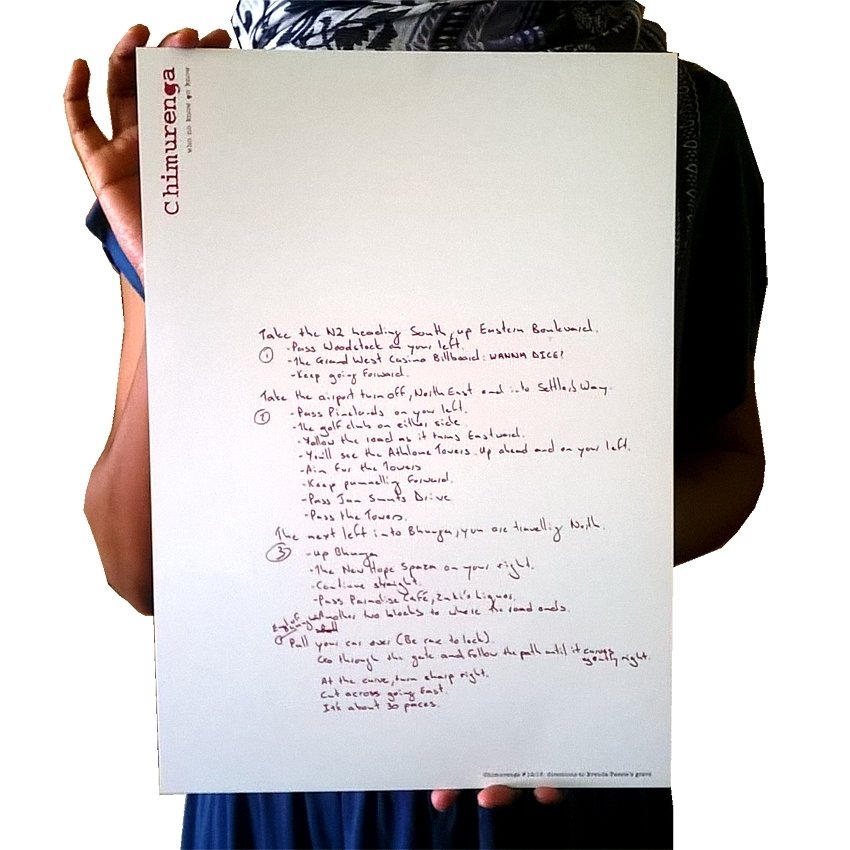 Chimurenga
who no know go know
Take the N2 heading South, up Eastern Boulevard.
① -Pass Woodstock on your left.
-The Grand West Casino Billboard: WANNA DICE?
-Keep going forward.
Take the airport turn off, North East and into Settlers Way.
-Pass Pinelands on your left.
-The golf club on either side.
-Follow the road as it turns Eastward.
-You'll see the Athlone Towers. Up ahead and on your left.
-Aim for the Towers
-Keep pummelling forward.
-Pass Jan Smuts Drive
-Pass the Towers.
The next left into Bhunga, you are travelling North.
③ -Up Bhunga
-The New Hope Spaza on your right.
-Continue straight.
-Pass Paradise Café, Zaki's Liquor.
-Another two blocks to where the road ends.
End of Bhunga
Pull your car over (Be sure to lock).
Go through the gate and follow the path until it curves gently right.
At the curve, turn sharp right.
Cut across going East.
It's about 30 paces.
Chimurenga #12/13: directions to Brenda Fassie's grave